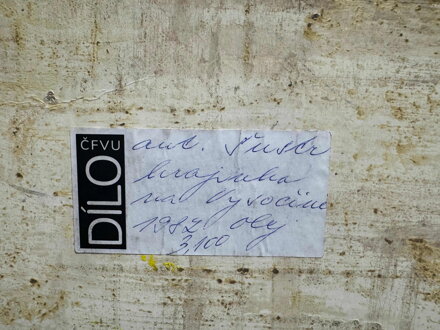 ČFVU
DÍLO
aut. Šustr
krajinka
na Vysočině
1982 olej
3,100